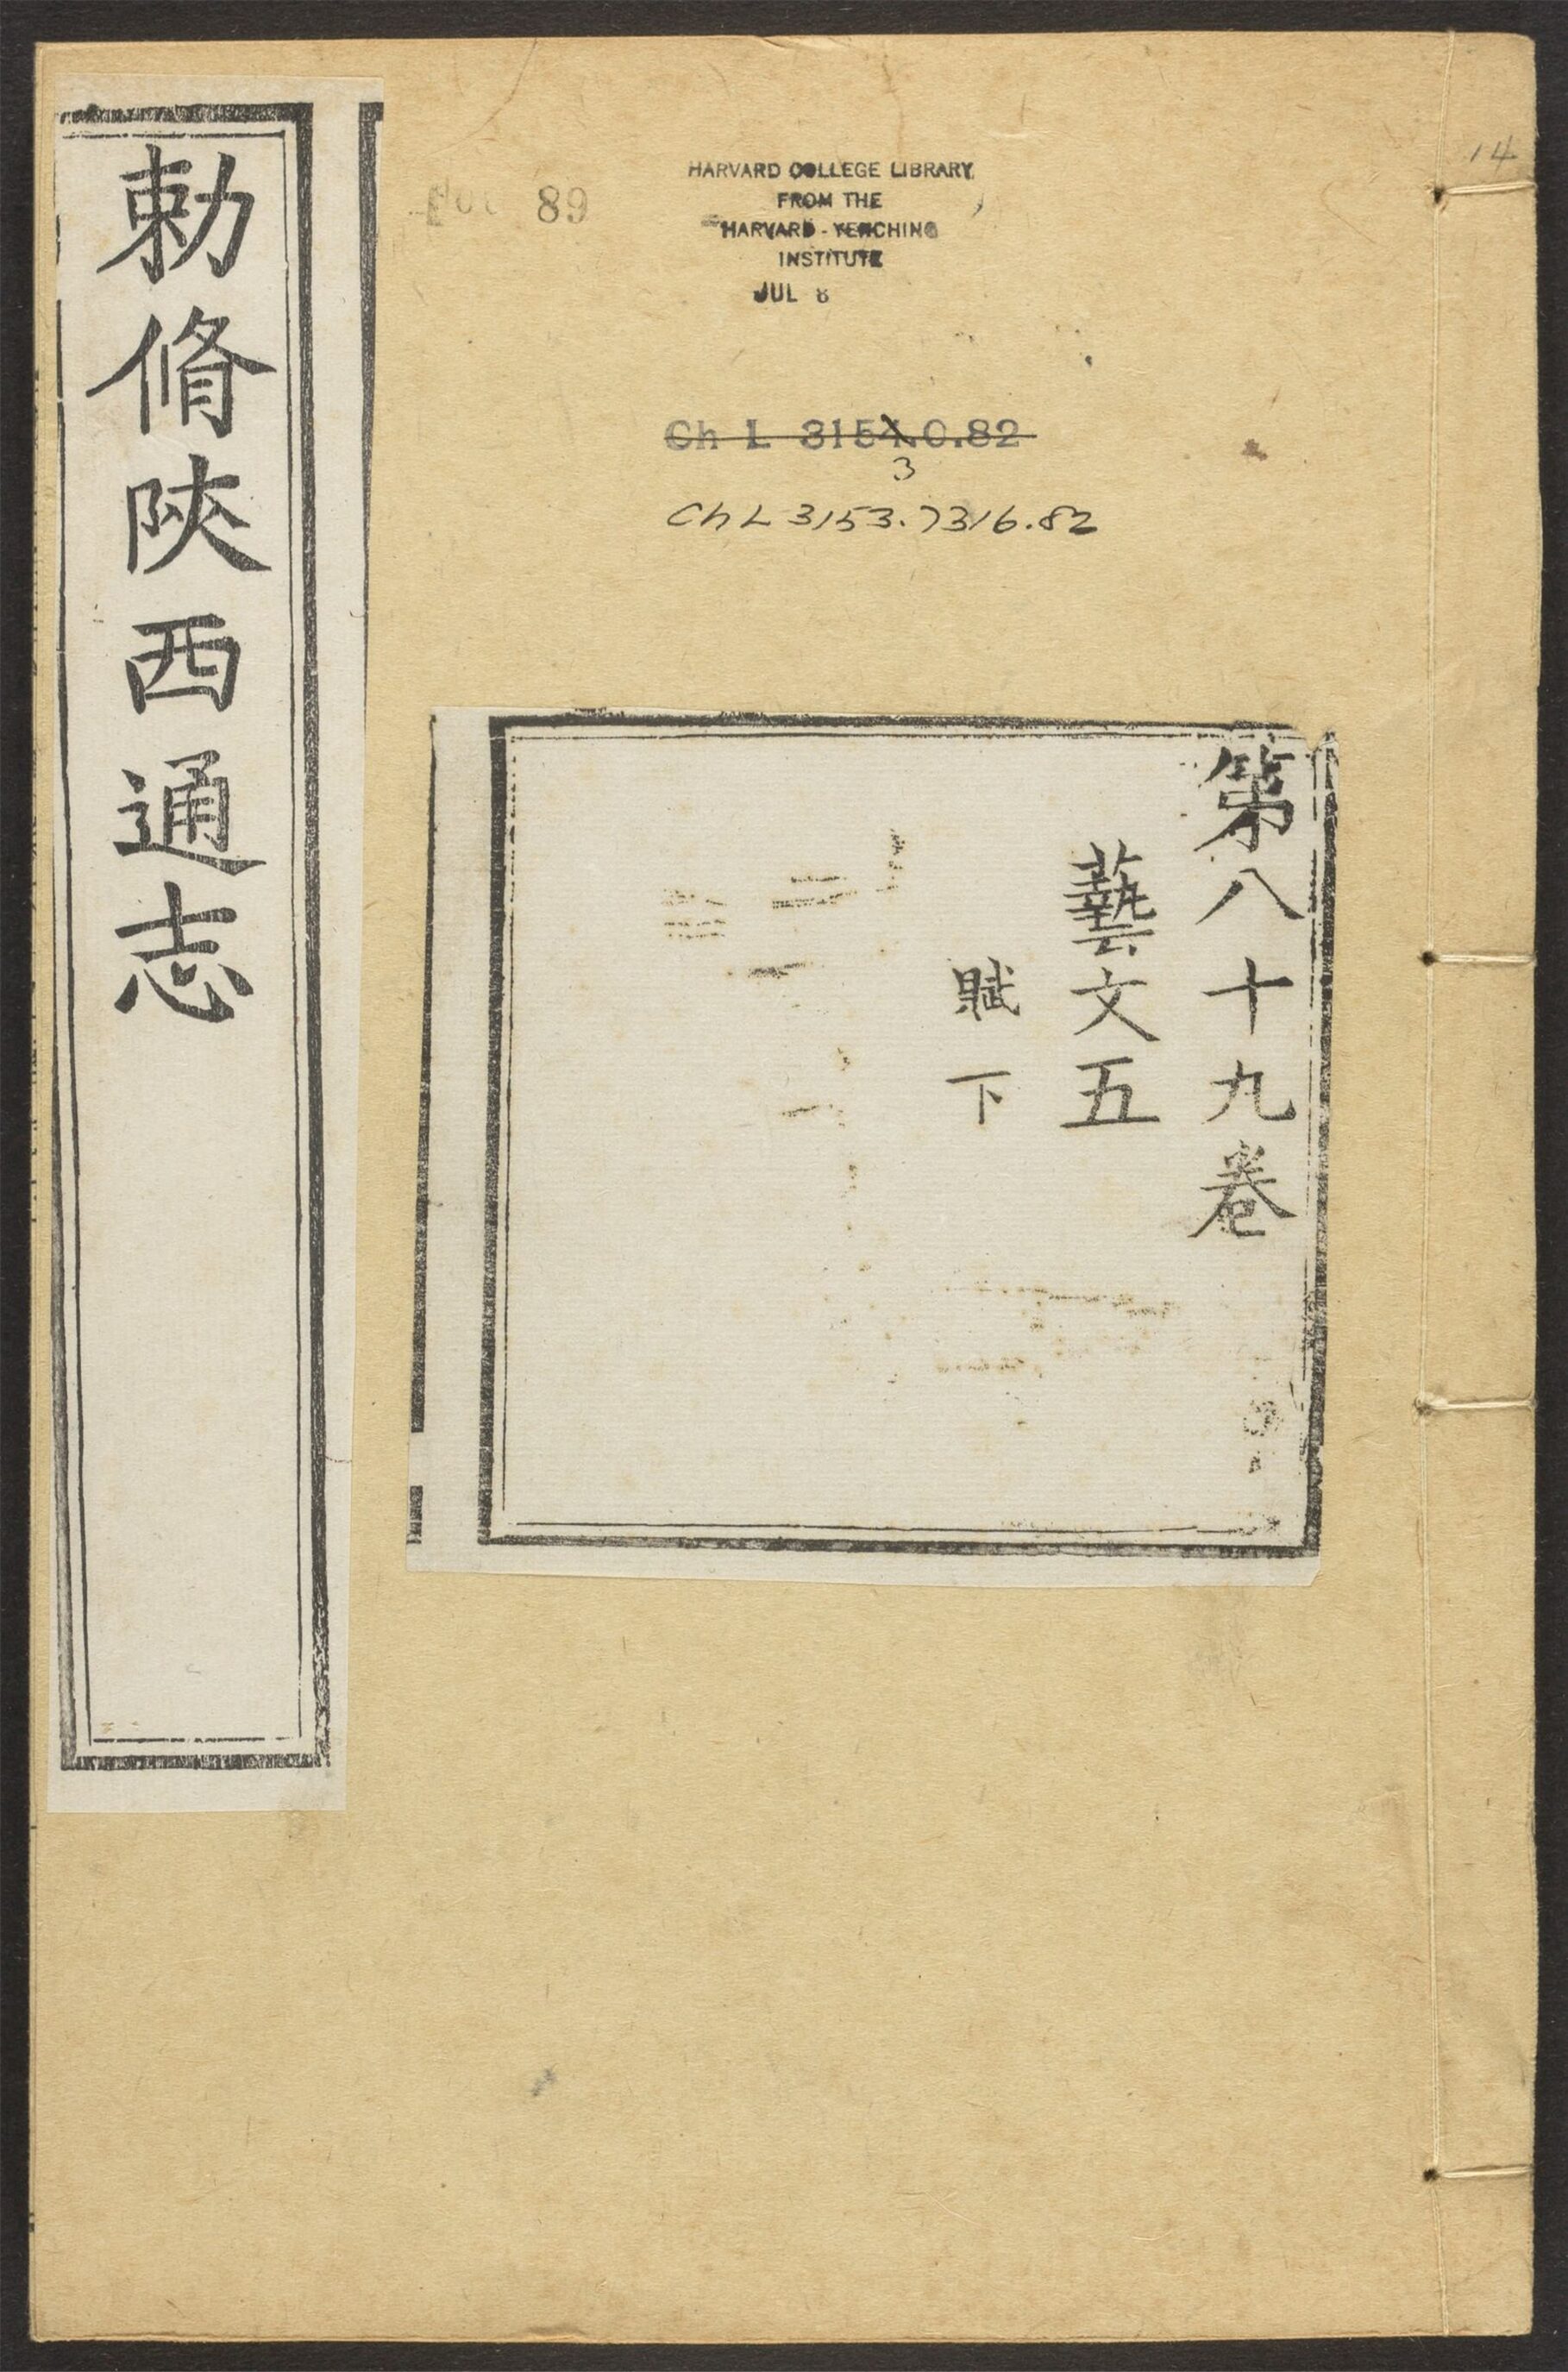 勅脩陜西通志
14
89
HARVARD COLLEGE LIBRARY
FROM THE
HARVARD-YENCHING
INSTITUTE
JUL 8
Ch L 3154.0.82
3
Ch L 3153.7316.82
第八十九卷
藝文五
賦下